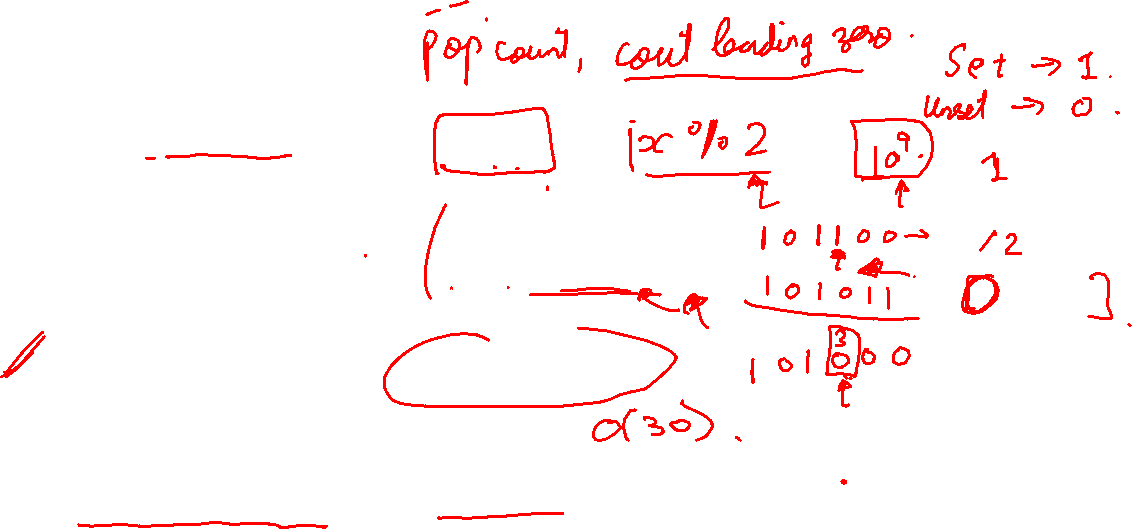 pop count, cout leading zero.
Set → 1.
Unset → 0.
x % 2
10^9.
1
101100 → /2
101011
0
]
3
101000
O(30).